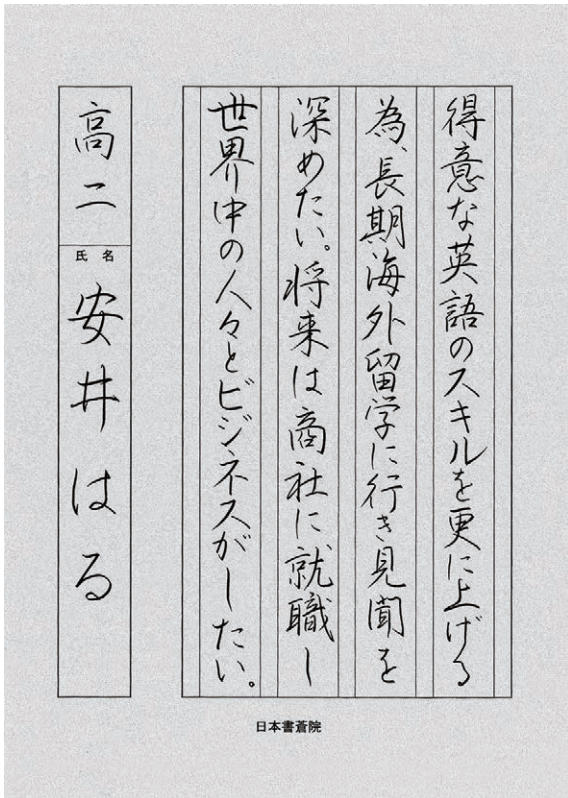 得意な英語のスキルを更に上げる
為、長期海外留学に行き見聞を
深めたい。将来は商社に就職し
世界中の人々とビジネスがしたい。
高二
氏名
安井はる
日本書蒼院